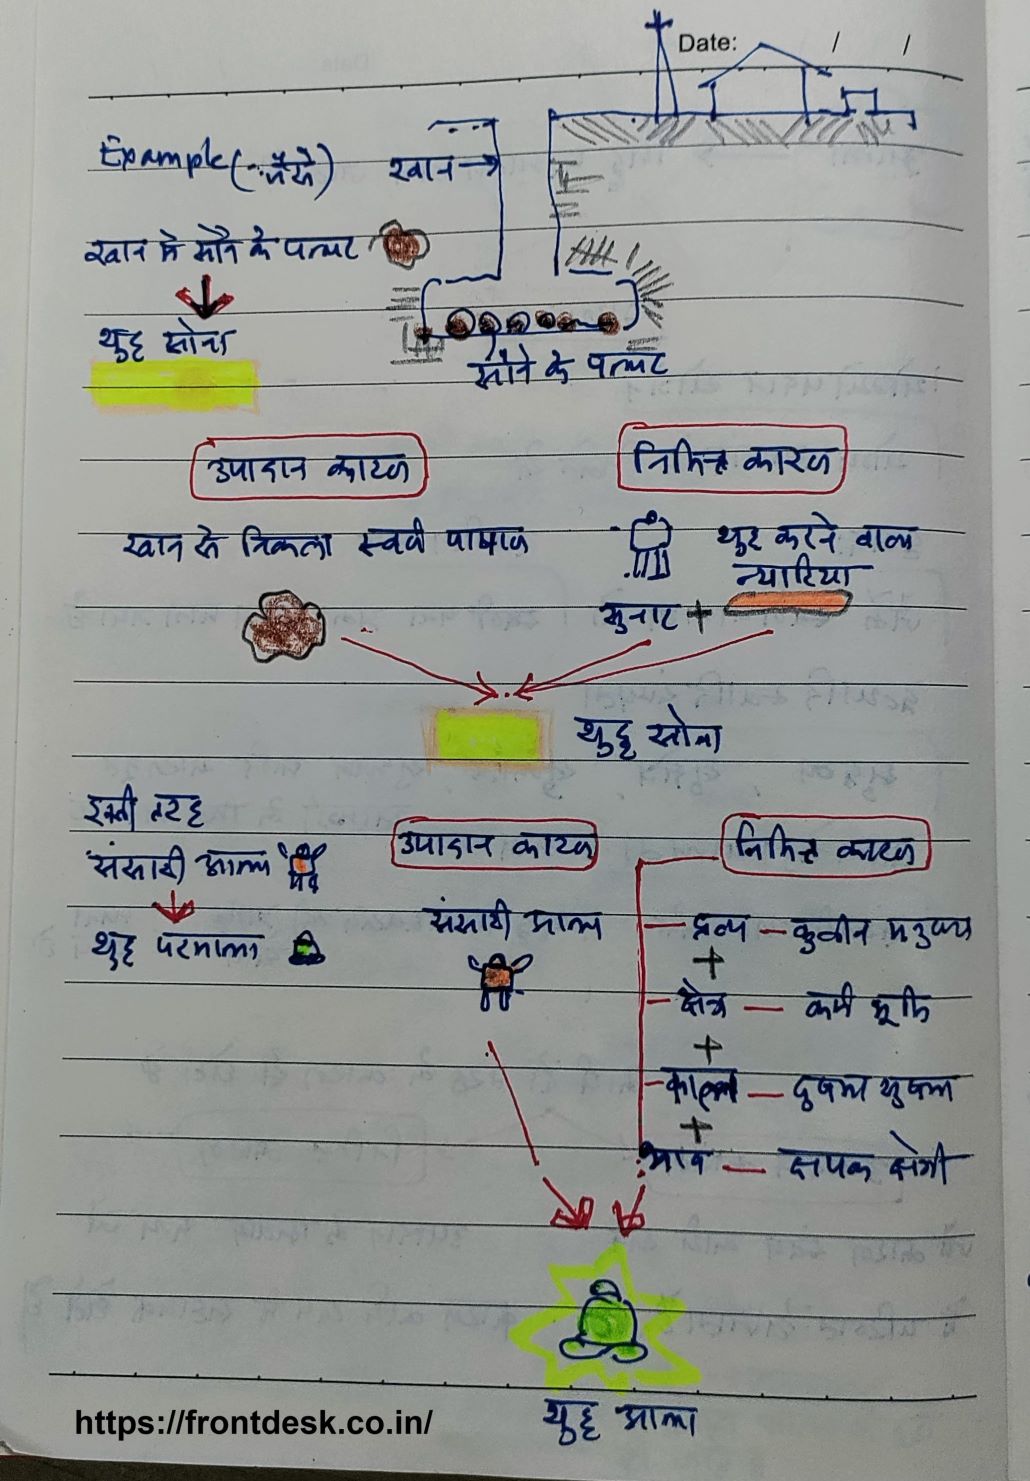 Date: / /
Example (जैसे)
खान →
खान में सोने के पत्थर
शुद्ध सोना
सोने के पत्थर
उपादान कारण
निमित्त कारण
खान से निकला स्वर्ण पाषाण
शुद्ध करने वाला
न्यारिया
सुनार +
शुद्ध सोना
इसी तरह
संसारी आत्मा
शुद्ध परमात्मा
उपादान कारण
निमित्त कारण
संसारी आत्मा
द्रव्य — कुलीन मनुष्य
+
क्षेत्र — कर्म भूमि
+
काल — दुषमा सुषमा
+
भाव — क्षपक श्रेणी
शुद्ध आत्मा
https://frontdesk.co.in/